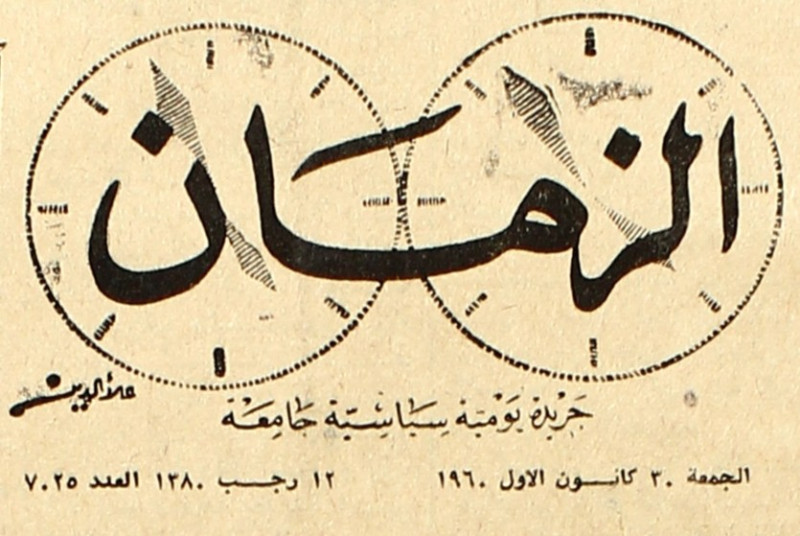 الزمان
علاء الدين
جريدة يومية سياسية جامعة
الجمعة ٣٠ كانون الاول ١٩٦٠ ١٢ رجب ١٣٨٠ العدد ٧٠٢٥